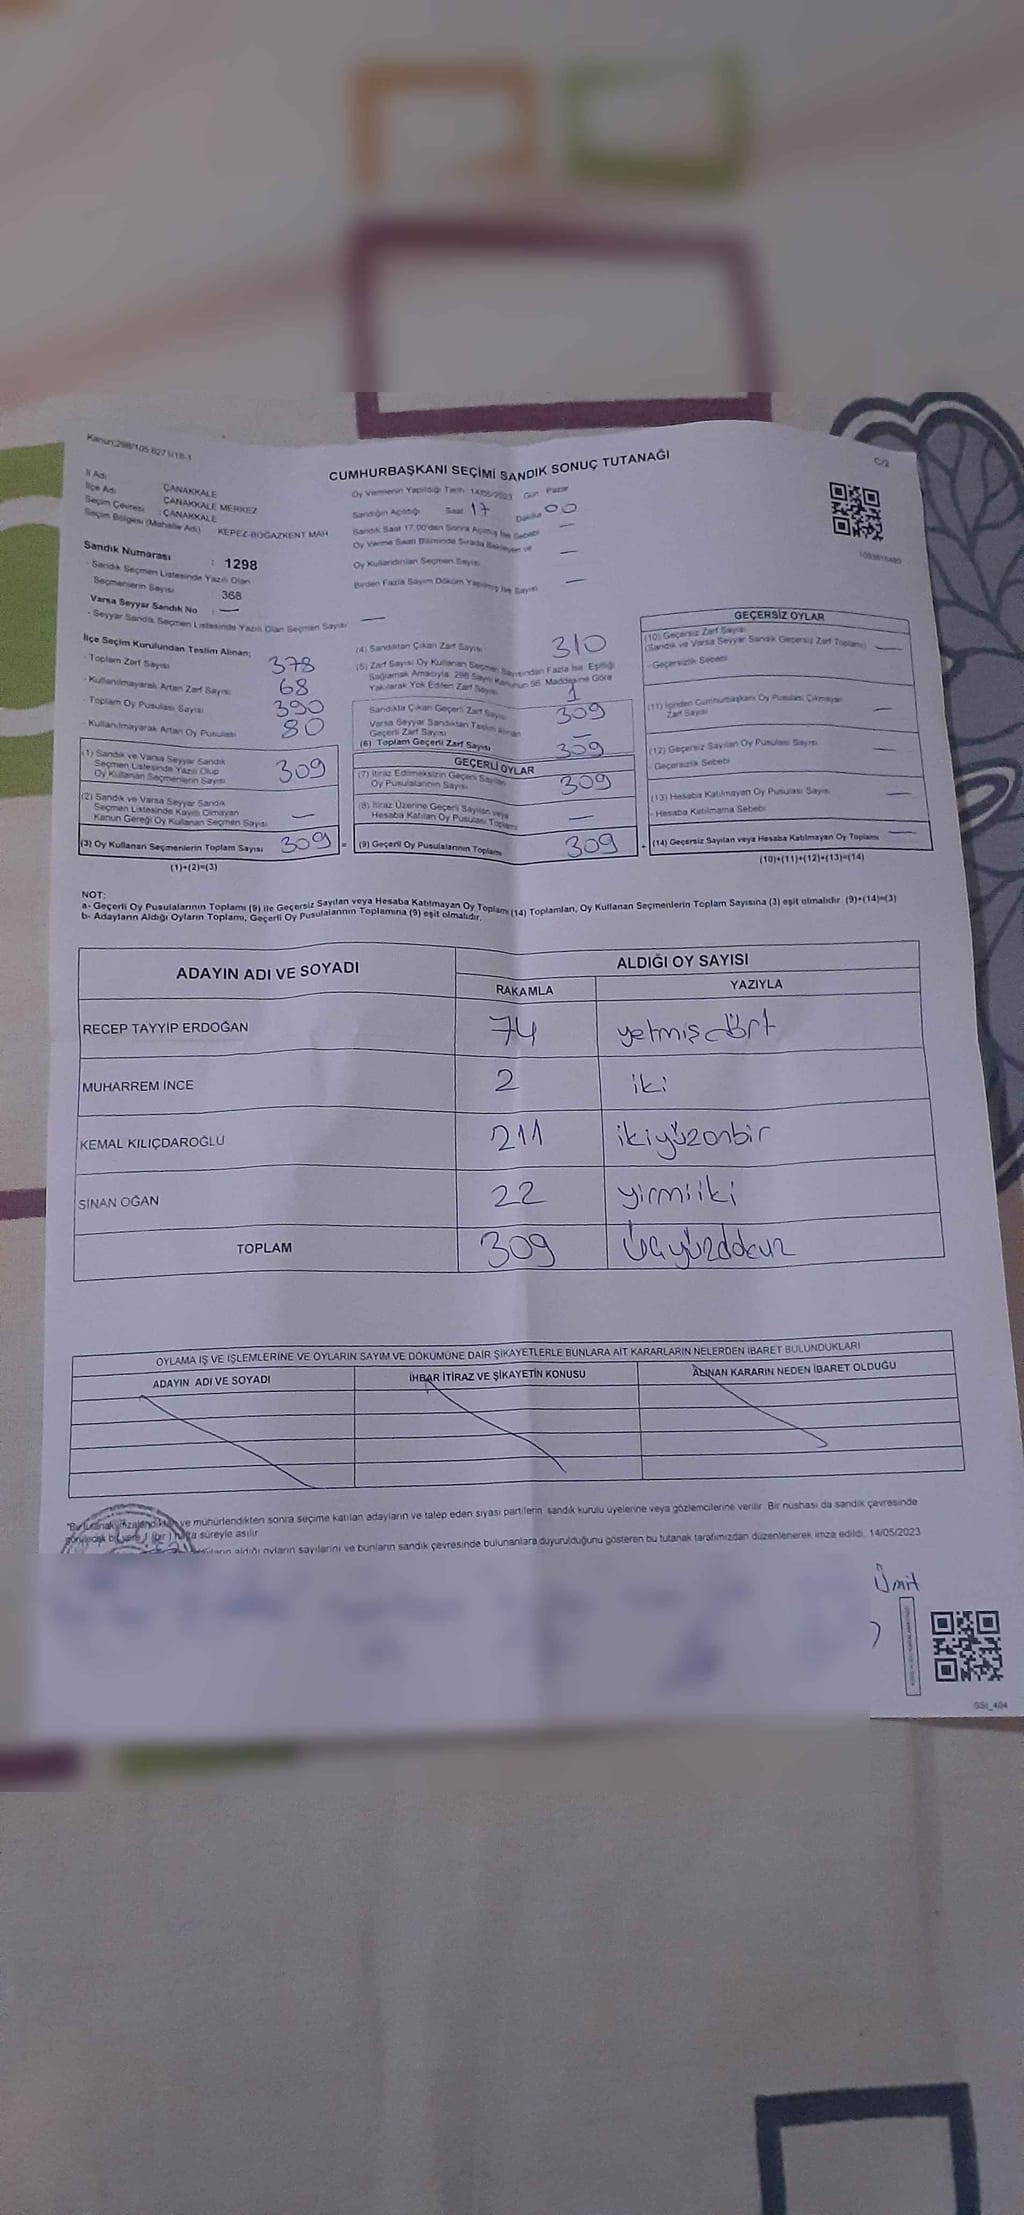 Kanun:298/105 6271/18-1
C/2
CUMHURBAŞKANI SEÇİMİ SANDIK SONUÇ TUTANAĞI
İl Adı ÇANAKKALE
İlçe Adı ÇANAKKALE MERKEZ
Seçim Çevresi : ÇANAKKALE
Seçim Bölgesi (Mahalle Adı) KEPEZ-BOĞAZKENT MAH
Oy Vermenin Yapıldığı Tarih :14/05/2023 Gün : Pazar
Sandığın Açıldığı Saat 17 Dakika 00
Sandık Saat 17:00'den Sonra Açılmış İse Sebebi —
Oy Verme Saati Bitiminde Sırada Bekleyen ve
Oy Kullandırılan Seçmen Sayısı —
Birden Fazla Sayım Döküm Yapılmış İse Sayısı —
Sandık Numarası : 1298
- Sandık Seçmen Listesinde Yazılı Olan
Seçmenlerin Sayısı : 368
Varsa Seyyar Sandık No : —
- Seyyar Sandık Seçmen Listesinde Yazılı Olan Seçmen Sayısı —
İlçe Seçim Kurulundan Teslim Alınan;
- Toplam Zarf Sayısı 378
- Kullanılmayarak Artan Zarf Sayısı 68
- Toplam Oy Pusulası Sayısı 390
- Kullanılmayarak Artan Oy Pusulası 80
(1) Sandık ve Varsa Seyyar Sandık
Seçmen Listesinde Yazılı Olup
Oy Kullanan Seçmenlerin Sayısı 309
(2) Sandık ve Varsa Seyyar Sandık
Seçmen Listesinde Kayıtlı Olmayan
Kanun Gereği Oy Kullanan Seçmen Sayısı —
(3) Oy Kullanan Seçmenlerin Toplam Sayısı 309 =
(1)+(2)=(3)
(4) Sandıktan Çıkan Zarf Sayısı 310
(5) Zarf Sayısı Oy Kullanan Seçmen Sayısından Fazla İse, Eşitliği
Sağlamak Amacıyla 298 Sayılı Kanunun 98. Maddesine Göre
Yakılarak Yok Edilen Zarf Sayısı 1
Sandıkta Çıkan Geçerli Zarf Sayısı 309
Varsa Seyyar Sandıktan Teslim Alınan
Geçerli Zarf Sayısı —
(6) Toplam Geçerli Zarf Sayısı 309
GEÇERLİ OYLAR
(7) İtiraz Edilmeksizin Geçerli Sayılan
Oy Pusulalarının Sayısı 309
(8) İtiraz Üzerine Geçerli Sayılan veya
Hesaba Katılan Oy Pusulası Toplamı —
(9) Geçerli Oy Pusulalarının Toplamı 309 +
GEÇERSİZ OYLAR
(10) Geçersiz Zarf Sayısı
(Sandık ve Varsa Seyyar Sandık Geçersiz Zarf Toplamı) —
- Geçersizlik Sebebi
(11) İçinden Cumhurbaşkanı Oy Pusulası Çıkmayan
Zarf Sayısı —
(12) Geçersiz Sayılan Oy Pusulası Sayısı —
- Geçersizlik Sebebi
(13) Hesaba Katılmayan Oy Pusulası Sayısı —
- Hesaba Katılmama Sebebi
(14) Geçersiz Sayılan veya Hesaba Katılmayan Oy Toplamı —
(10)+(11)+(12)+(13)=(14)
NOT:
a- Geçerli Oy Pusulalarının Toplamı (9) ile Geçersiz Sayılan veya Hesaba Katılmayan Oy Toplamı (14) Toplamları, Oy Kullanan Seçmenlerin Toplam Sayısına (3) eşit olmalıdır. (9)+(14)=(3)
b- Adayların Aldığı Oyların Toplamı, Geçerli Oy Pusulalarının Toplamına (9) eşit olmalıdır.
ADAYIN ADI VE SOYADI ALDIĞI OY SAYISI
RAKAMLA YAZIYLA
RECEP TAYYİP ERDOĞAN 74 yetmişdört
MUHARREM İNCE 2 iki
KEMAL KILIÇDAROĞLU 211 ikiyüzonbir
SİNAN OĞAN 22 yirmiiki
TOPLAM 309 üçyüzdokuz
OYLAMA İŞ VE İŞLEMLERİNE VE OYLARIN SAYIM VE DÖKÜMÜNE DAİR ŞİKAYETLERLE BUNLARA AİT KARARLARIN NELERDEN İBARET BULUNDUKLARI
ADAYIN ADI VE SOYADI İHBAR İTİRAZ VE ŞİKAYETİN KONUSU ALINAN KARARIN NEDEN İBARET OLDUĞU
ve mühürlendikten sonra seçime katılan adayların ve talep eden siyasi partilerin sandık kurulu üyelerine veya gözlemcilerine verilir. Bir nüshası da sandık çevresinde
1 (bir) hafta süreyle asılır.
aldığı oyların sayılarını ve bunların sandık çevresinde bulunanlara duyurulduğunu gösteren bu tutanak tarafımızdan düzenlenerek imza edildi. 14/05/2023
Ümit